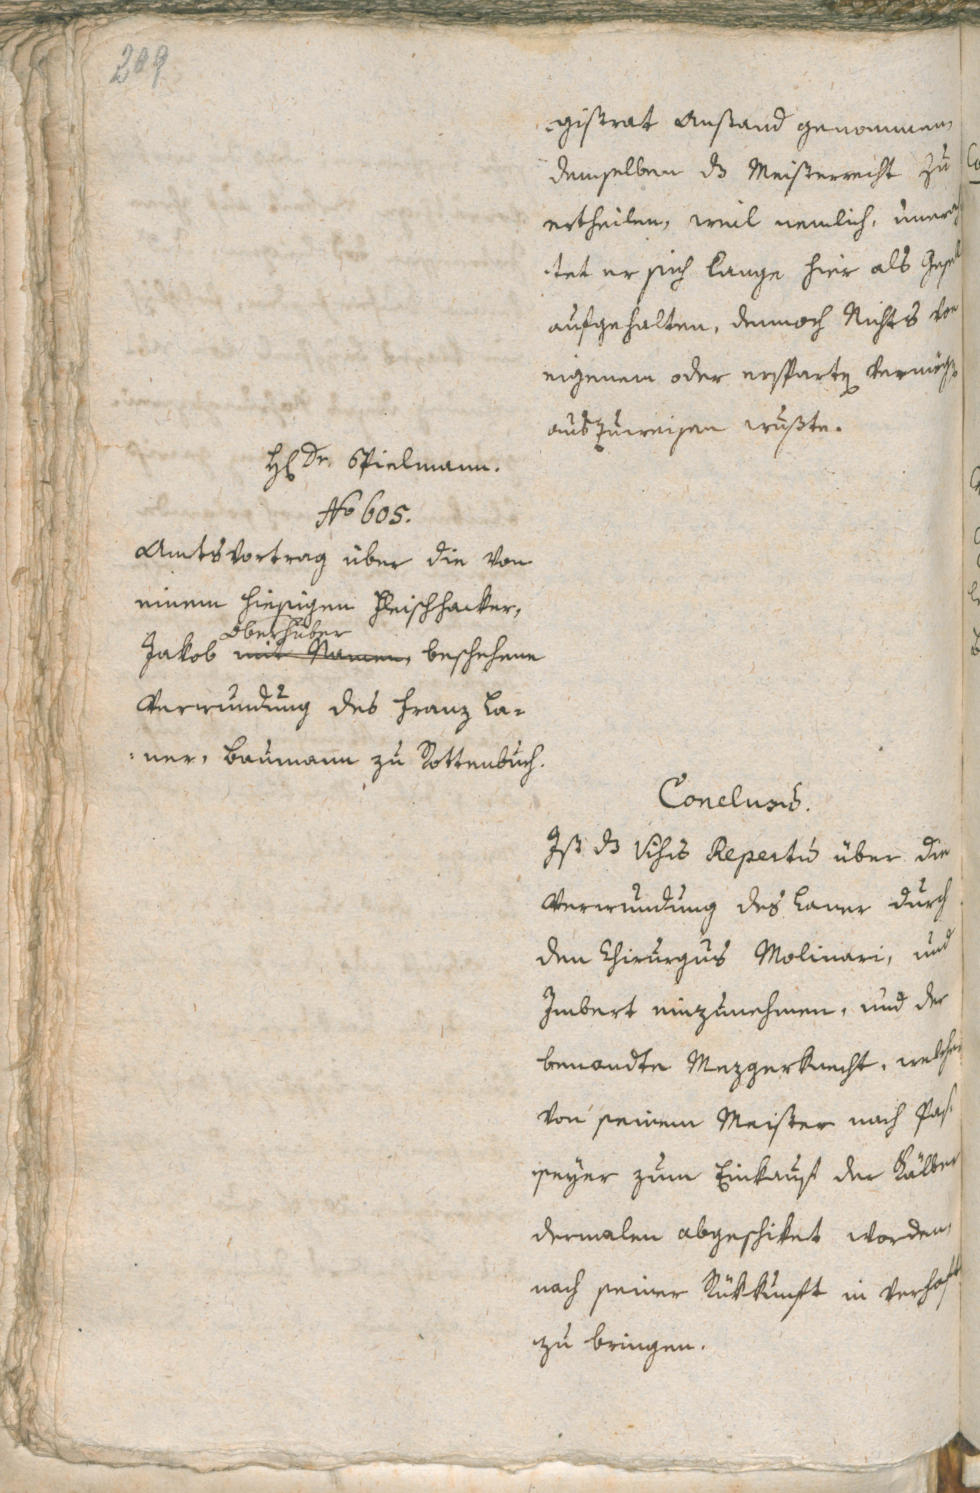 209
gistrat Anstand genommen,
demselben ds Meisterrecht zu
ertheilen, weil nemlich, unerach
tet er sich lange hier als Gesell
aufgehalten, dennoch Nichts von
eigenem oder erspartx Vermögx
auszuweisen wußte.
H Dr. Spielmann.
No 605.
Amtsvortrag über die von
einem hiesigen Fleischhacker,
Oberhuber
Jakob mit Namen, beschehene
Verwundung des Franz La-
ner, Baumann zu Rottenbuch.
Conclusũ.
Ist ds Visũ Repertũ über die
Verwundung des Laner durch
den Chirurgus Molinari, und
Imbert einzunehmen, und der
benandte Mezgerknecht, welcher
von seinem Meister nach Pas-
seyer zum Einkauf der Kälber
dermalen abgeschiket worden,
nach seiner Rükkunft in Verhaft
zu bringen.